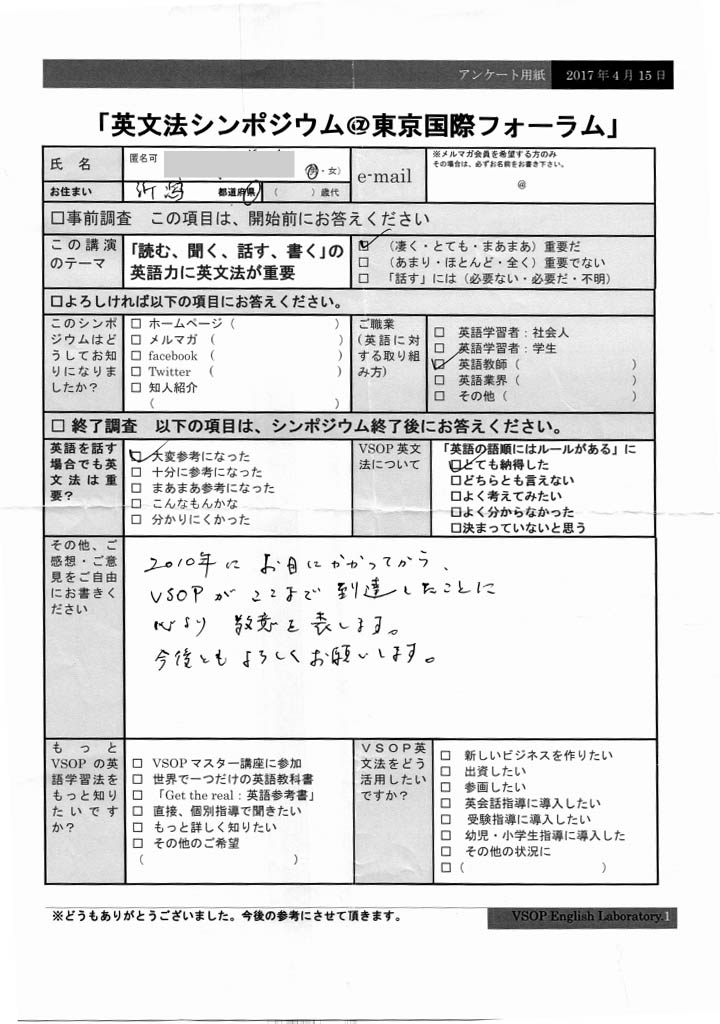 アンケート用紙 2017年4月15日
「英文法シンポジウム@東京国際フォーラム」
氏名
匿名可
(男・女)
e-mail
※メルマガ会員を希望する方のみ
その場合は、必ずお名前をお書き下さい。
@
お住まい
新潟 都道府県 ( )歳代
□事前調査 この項目は、開始前にお答えください
この講演
のテーマ
「読む、聞く、話す、書く」の
英語力に英文法が重要
□ (凄く・とても・まあまあ)重要だ
□ (あまり・ほとんど・全く)重要でない
□ 「話す」には(必要ない・必要だ・不明)
□よろしければ以下の項目にお答えください。
このシンポ
ジウムはど
うしてお知
りになりま
したか?
□ ホームページ( )
□ メルマガ ( )
□ facebook ( )
□ Twitter ( )
□ 知人紹介
( )
ご職業
(英語に対
する取り組
み方)
□ 英語学習者:社会人
□ 英語学習者:学生
□ 英語教師( )
□ 英語業界( )
□ その他( )
□ 終了調査 以下の項目は、シンポジウム終了後にお答えください。
英語を話す
場合でも英
文法は重
要?
□ 大変参考になった
□ 十分に参考になった
□ まあまあ参考になった
□ こんなもんかな
□ 分かりにくかった
VSOP英文
法について
「英語の語順にはルールがある」に
□とても納得した
□どちらとも言えない
□よく考えてみたい
□よく分からなかった
□決まっていないと思う
その他、ご
感想・ご意
見をご自由
にお書きく
ださい
2010年に お目にかかってから、
VSOPが ここまで 到達したことに
心より 敬意を 表します。
今後とも よろしく お願いします。
もっと
VSOPの英
語学習法を
もっと知り
たいです
か?
□ VSOPマスター講座に参加
□ 世界で一つだけの英語教科書
□ 「Get the real:英語参考書」
□ 直接、個別指導で聞きたい
□ もっと詳しく知りたい
□ その他のご希望
( )
VSOP英
文法をどう
活用したい
ですか?
□ 新しいビジネスを作りたい
□ 出資したい
□ 参画したい
□ 英会話指導に導入したい
□ 受験指導に導入したい
□ 幼児・小学生指導に導入した
□ その他の状況に
□( )
※どうもありがとうございました。今後の参考にさせて頂きます。
VSOP English Laboratory.1